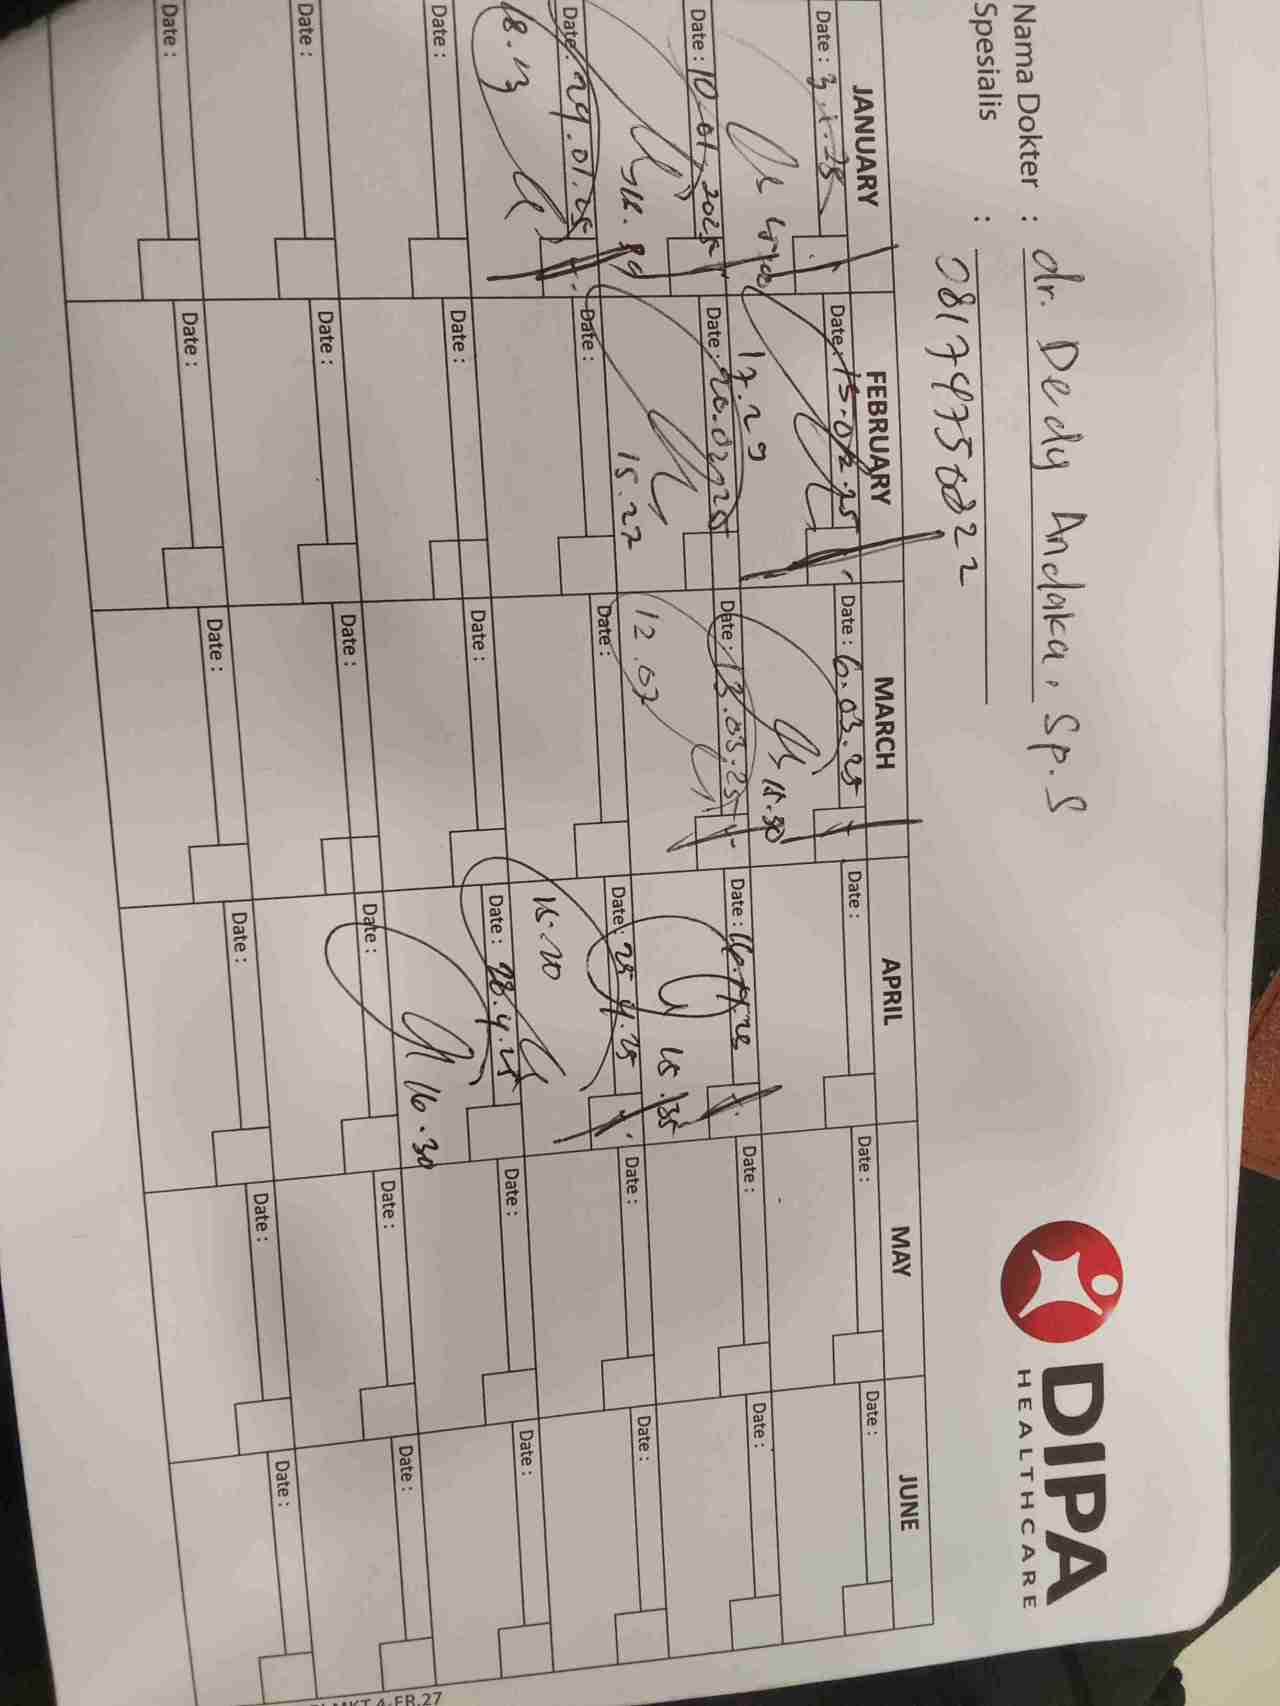 Nama Dokter : dr. Dedy Andaka, Sp.S
Spesialis :
DIPA
HEALTHCARE
JANUARY FEBRUARY MARCH APRIL MAY JUNE
Date : 3.1.25 Date : 13.02.25 Date : 6.03.25 Date : Date : Date :
17.29 15.30
Date : 10-01-2025 Date : 20.02.25 Date : 13.03.25 Date : Date : Date :
15.27 12.07 15.35
Date : 29.01.25 Date : Date : Date : 25.4.25 Date : Date :
18.13 15.20
Date : Date : Date : Date : 28.4.25 Date : Date :
16.30
Date : Date : Date : Date : Date : Date :
Date : Date : Date : Date : Date : Date :